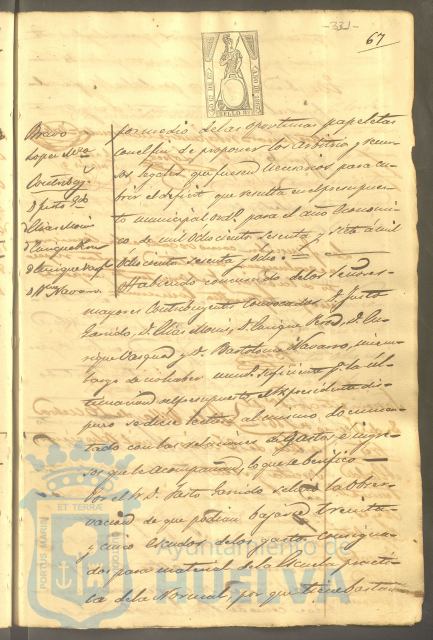 -331-
67
SELLO 9º
AÑO DE 1867
Bravo
Lopez
y
Contribuy.
D. Justo Gdo
D. Elias Moris
D. Enrique Rerd
D. Enrique Vazqz
D. Bme Navarro
por medio de las oportunas papeletas
con el fin de proponer los arbitrios y recur-
sos legales que fueren necesarios para cu-
brir el deficit que resulta en el presupues-
to municipal ordo para el año economi-
co de mil ochociento sesenta y siete a mil
ochociento sesenta y ocho.
Habiendo concurrido de los Señores
mayores Contribuyentes convocados D. Justo
Garrido, D. Elias Moris, D. Enrique, D. En-
rique Vazquez y D. Bartolome Navarro, sin em-
bargo de no haber numo suficiente pa la ul-
timacion del presupuesto, el Sr presidente dis-
puso se diese lectura al mismo documen-
tado con las relaciones de gastos e ingre-
sos que le acompañan, lo que se berificó.
Por el Sr D. Justo Garrido se hizo la obser-
vacion de que podian bajarse treinta
y cinco escudos de los gastos consigna-
dos para material de la Escuela practi-
ca de la Normal, por que tiene bastan-
PORTUS MARIS
ET TERRÆ
Ayuntamiento de
HUELVA